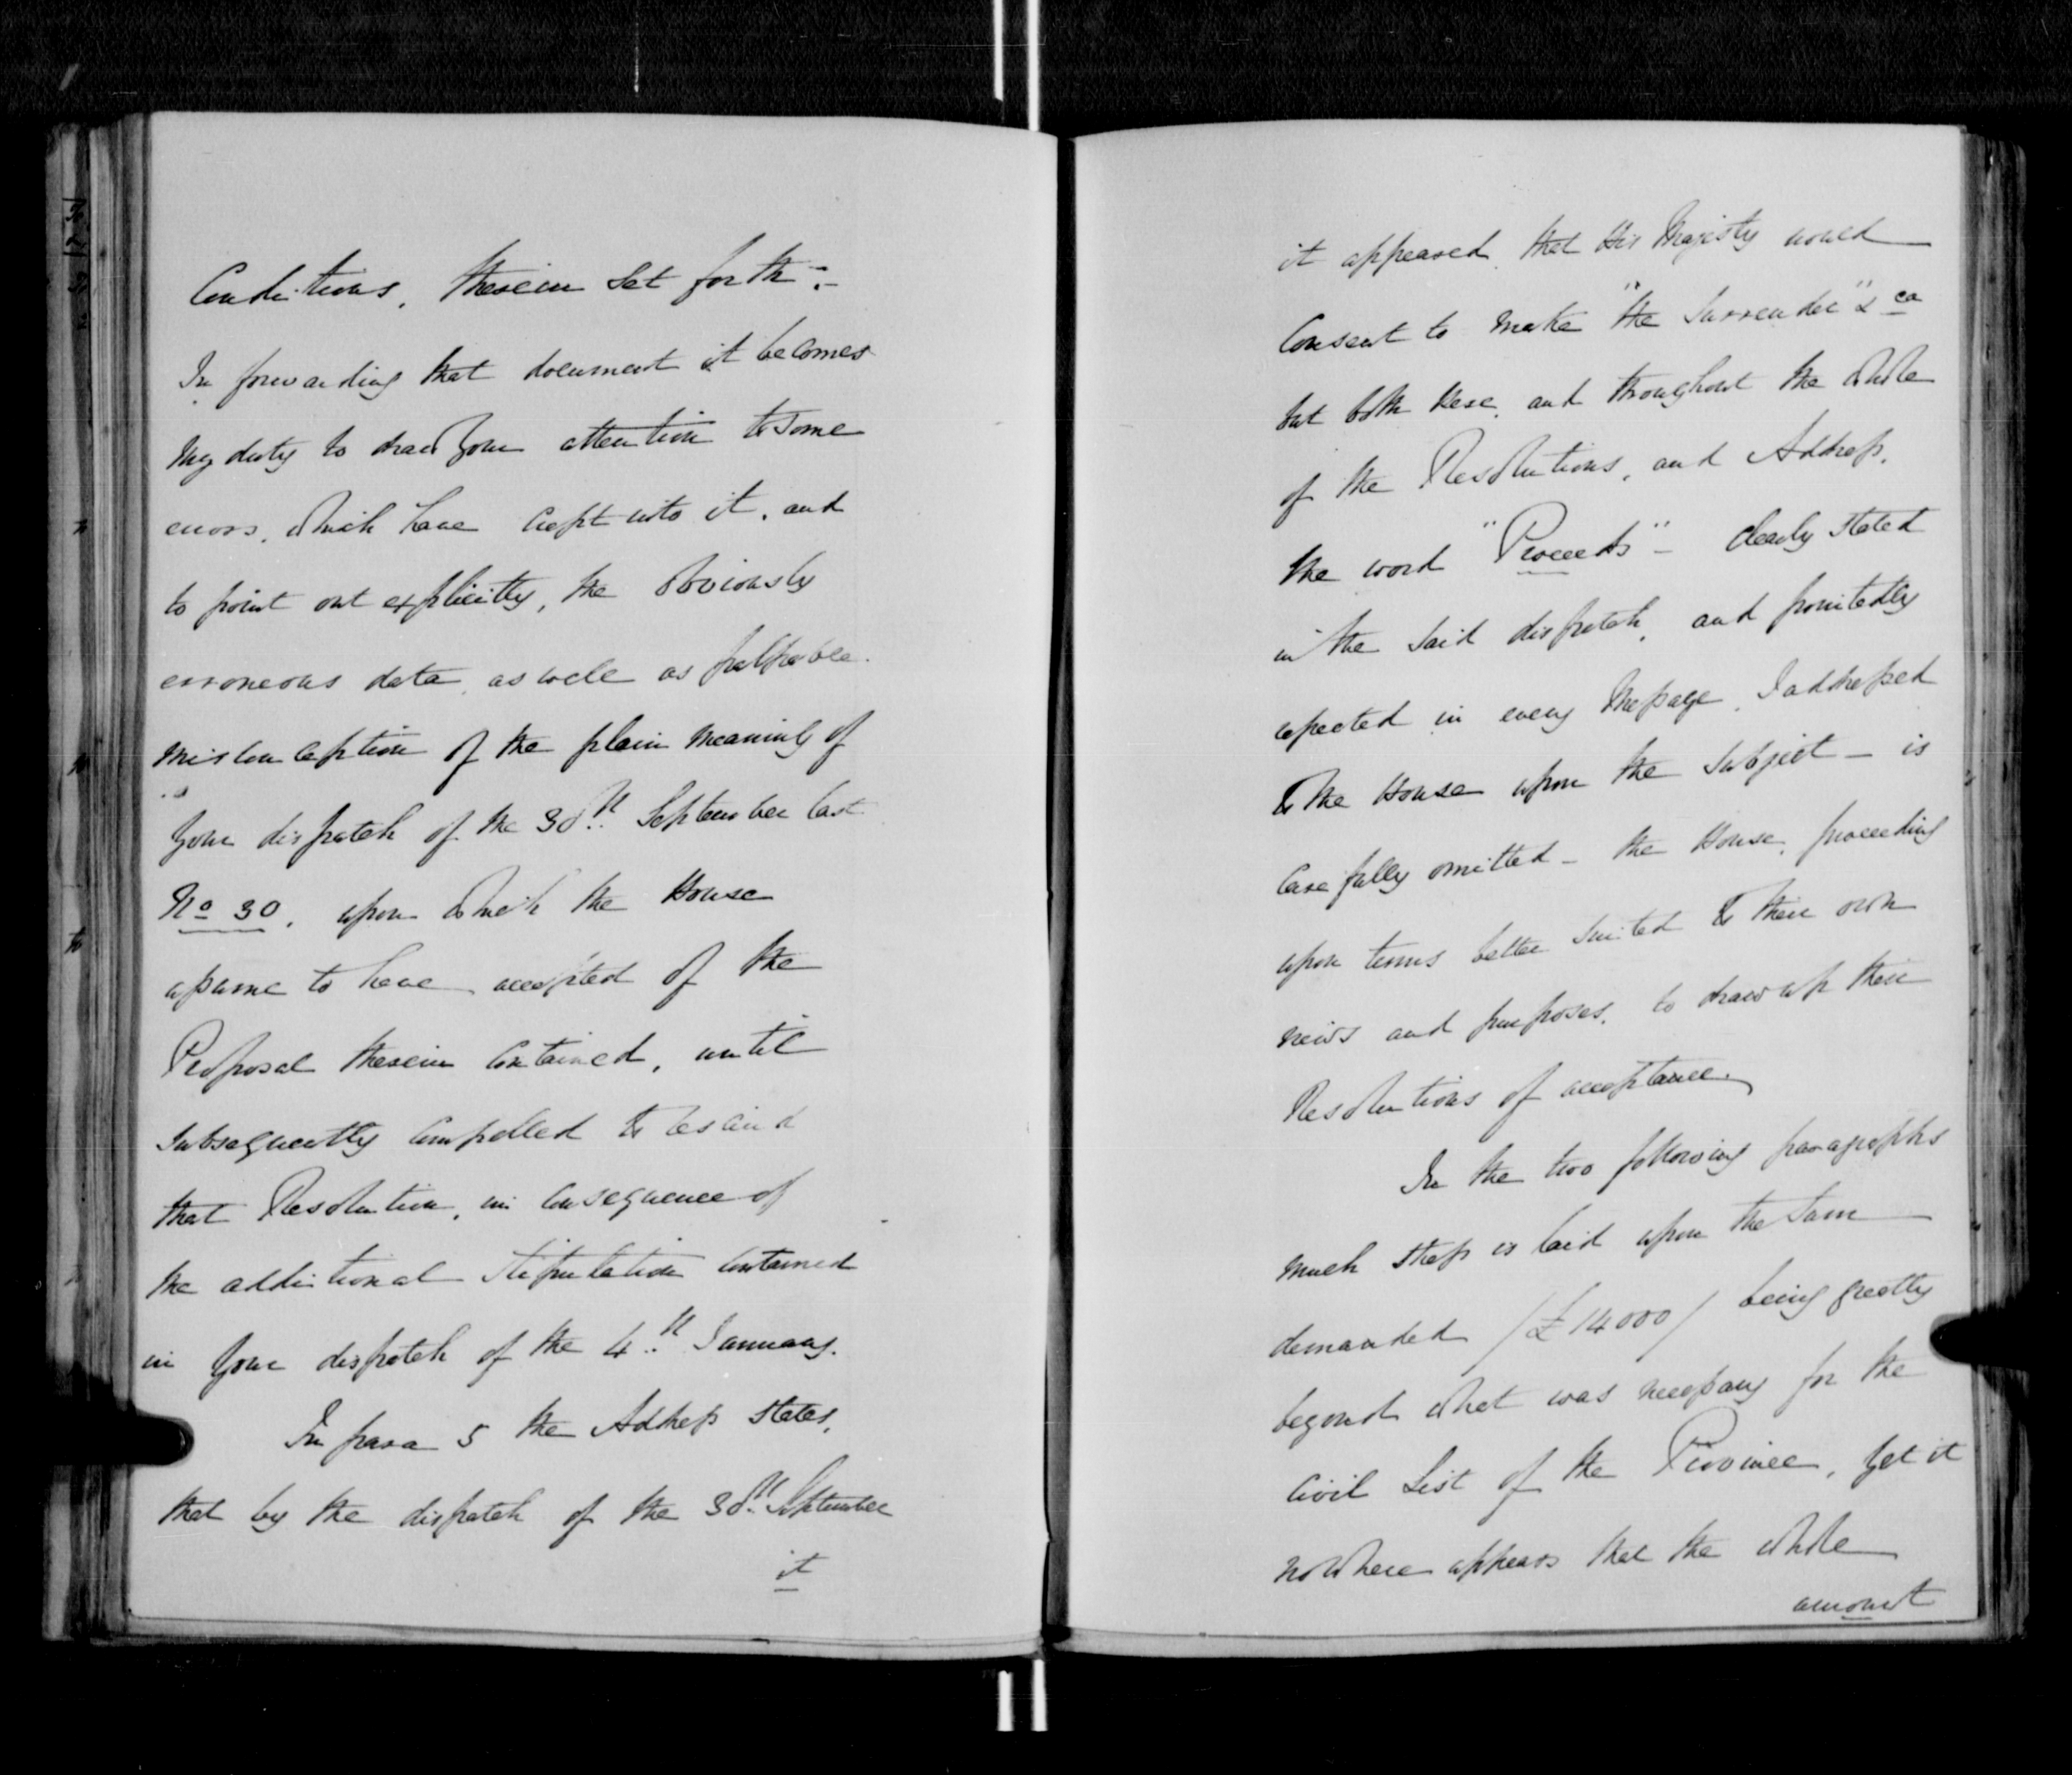 Conditions, therein set forth:-
In forwarding that document it becomes
my duty to draw your attention to some
errors, which have crept into it, and
to point out explicitly, the obviously
erroneous data, as well as palpable
misconception of the plain meaning of
your dispatch of the 30th September last
No 30, upon which the House
assume to have accepted of the
Proposal therein contained, until
subsequently compelled to rescind
that Resolution, in consequence of
the additional stipulation contained
in your dispatch of the 4th January.
In para 5 the Address states,
that by the dispatch of the 30th September
it
it appeared that His Majesty would
consent to make "the surrender" &ca
but both here, and throughout the whole
of the Resolutions, and Address,
the word "Proceeds" - clearly stated
in the said dispatch, and pointedly
repeated in every Message, I addressed
to the House upon the subject - is
carefully omitted - the House, proceeding
upon terms better suited to their own
views and purposes, to draw up their
Resolutions of acceptance.
In the two following paragraphs
much stress is laid upon the sum
demanded /£14000/ being greatly
beyond what was necessary for the
Civil List of the Province, yet it
no where appears that the whole
amount